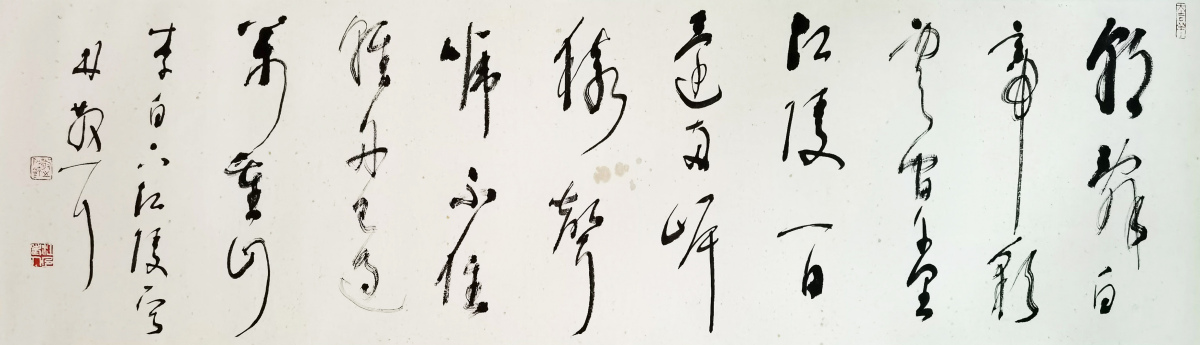 朝辭白
帝彩
雲間千里
江陵一日
還兩岸
猿聲
啼不住
輕舟已過
萬重山
李白下江陵
林散耳